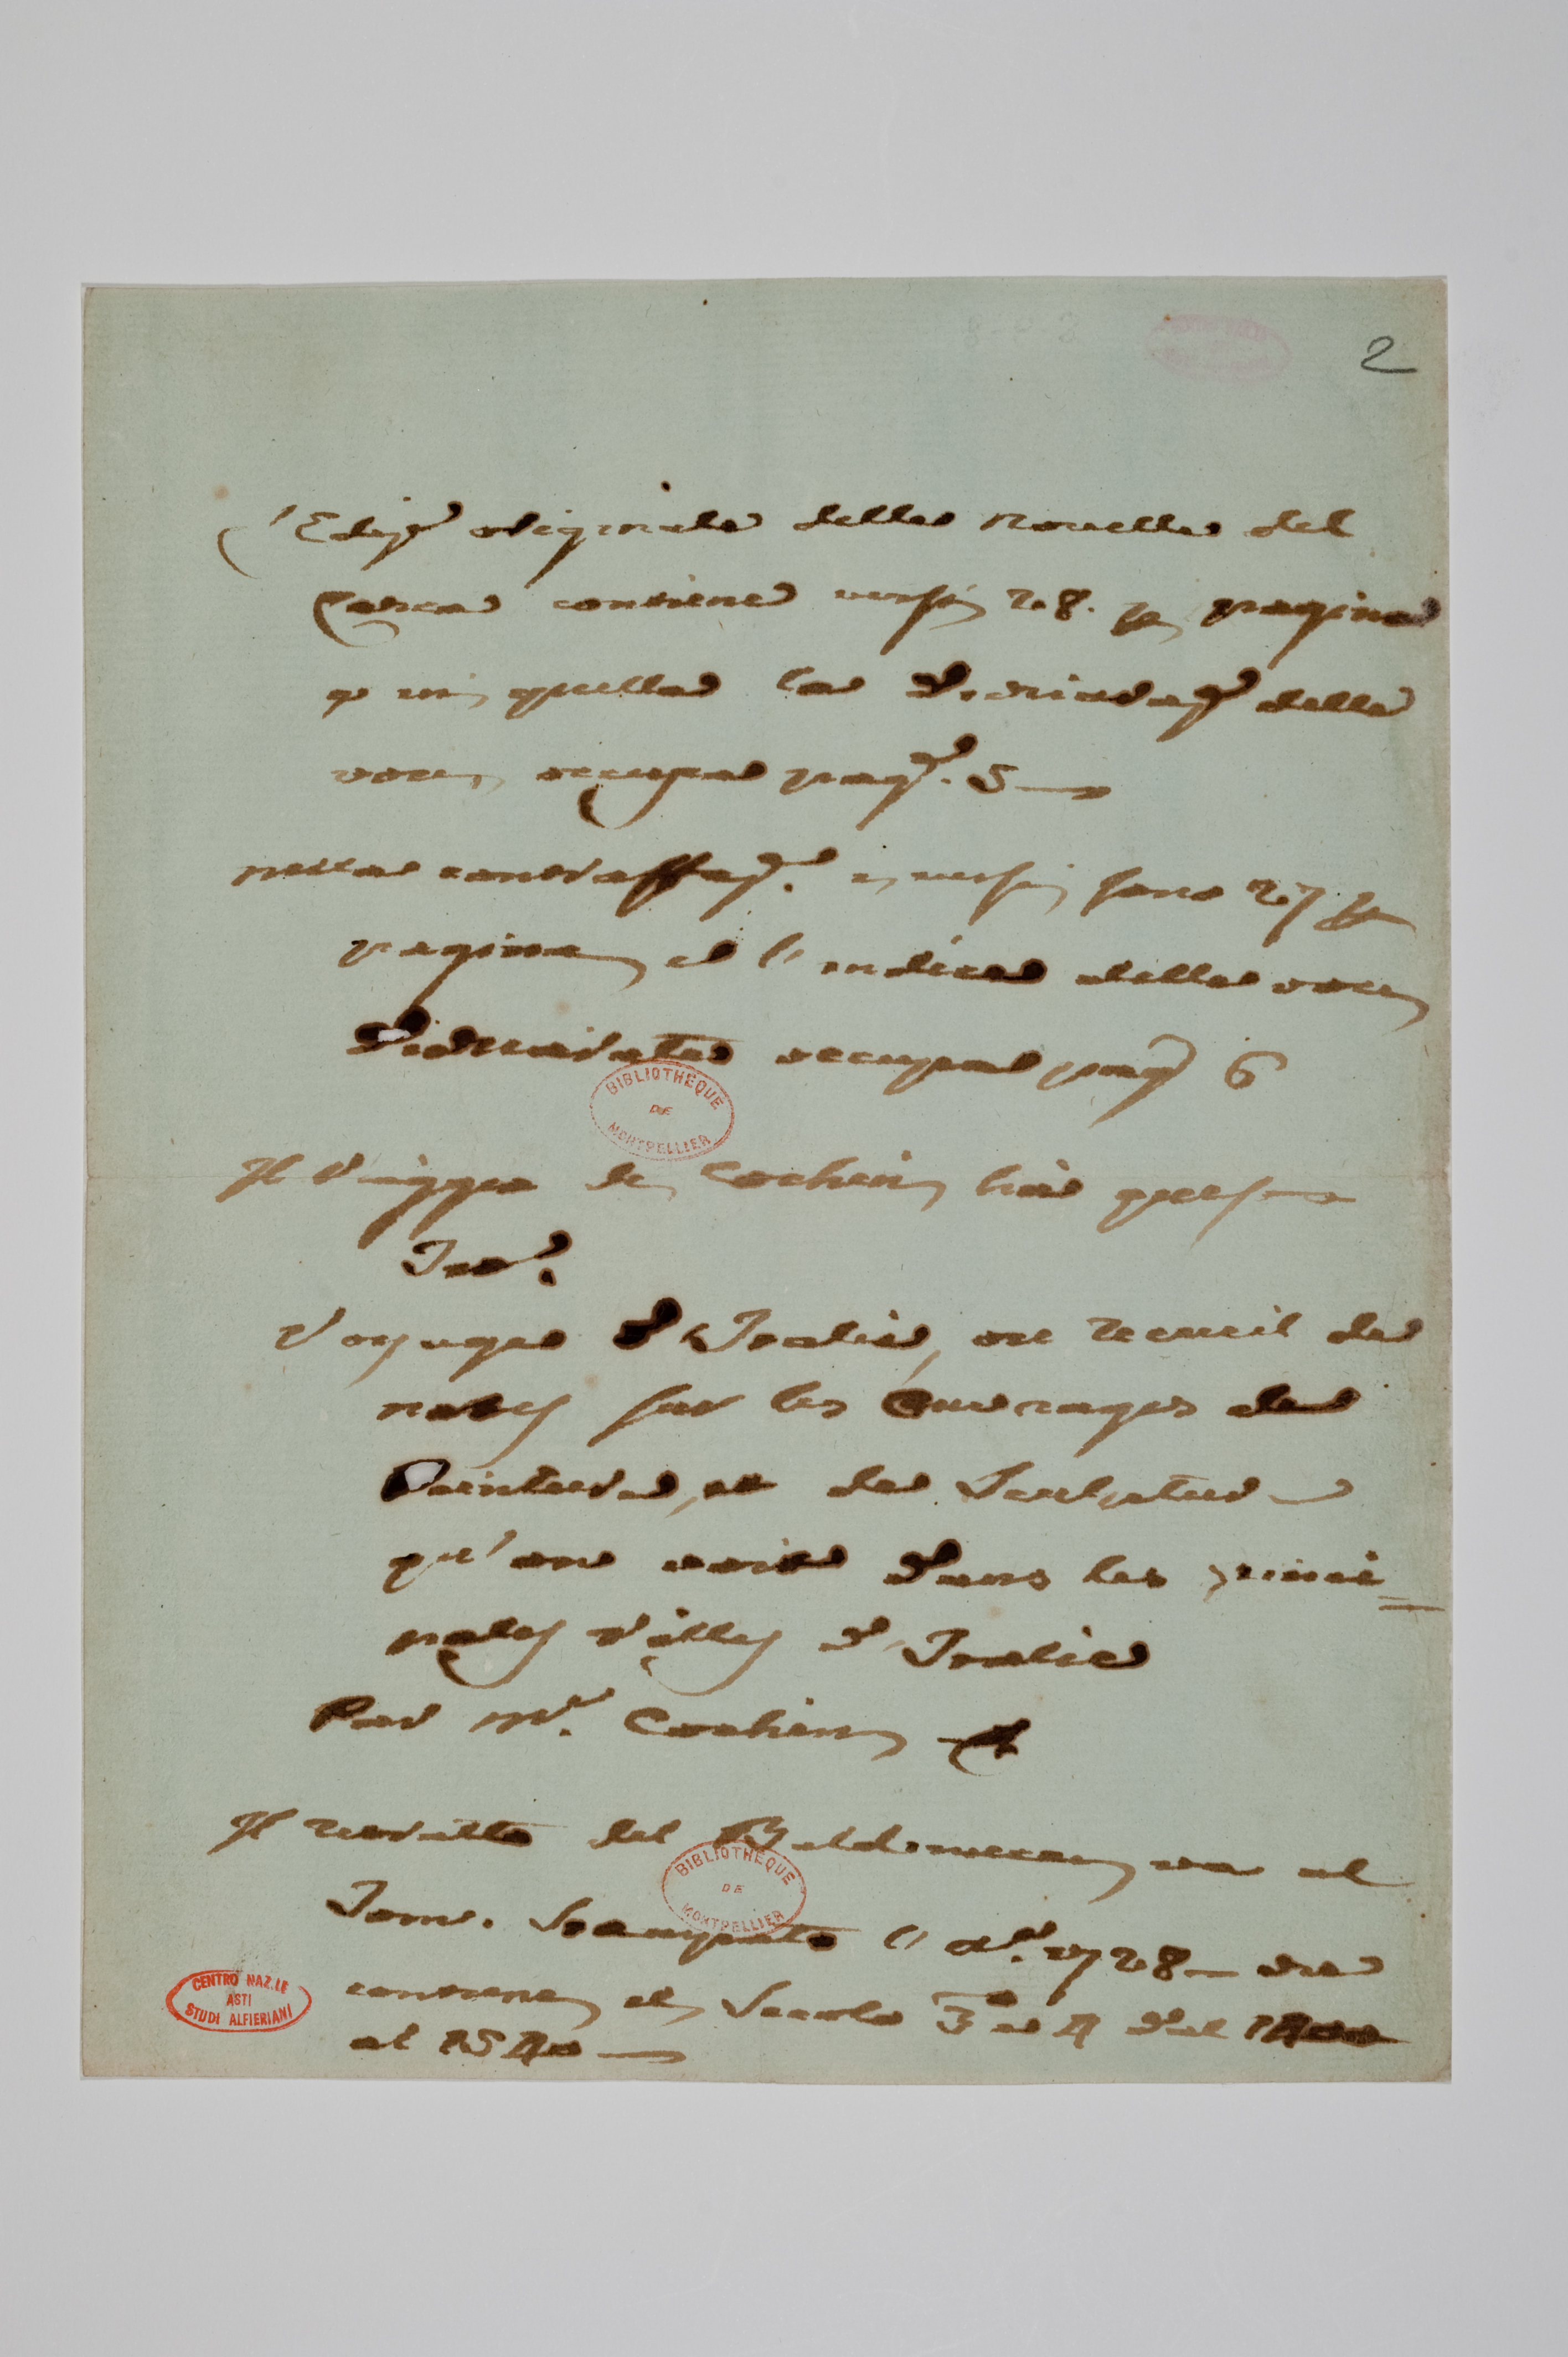 2
l'Ediz.e originale delle novelle del
Parca contiene versi 28. per pagina
e in quella la Dichiaraz.e delle
voci occupa pag.e 5
nella contraffaz.e i versi sono 27 per
pagina, e l'indice delle voci
Dichiarate occupa pag. 6
BIBLIOTHEQUE
DE
MONTPELLIER
Il Viaggio di Cochin ha questo
Tit.o
Voyage d'Italie, ou recueil de
notes sur les Ouvrages de
Peinture, et de Sculpture
qu'on voit dans les princi=
pales Villes d'Italie
Par M.r Cochin
Il ritratto del Baldinucci va al
BIBLIOTHEQUE
DE
MONTPELLIER
Tomo. Stampato l'a.o 1728 che
contiene il Secolo 3 e 4 dal 1400
al 1540
CENTRO NAZ.LE
ASTI
STUDI ALFIERIANI